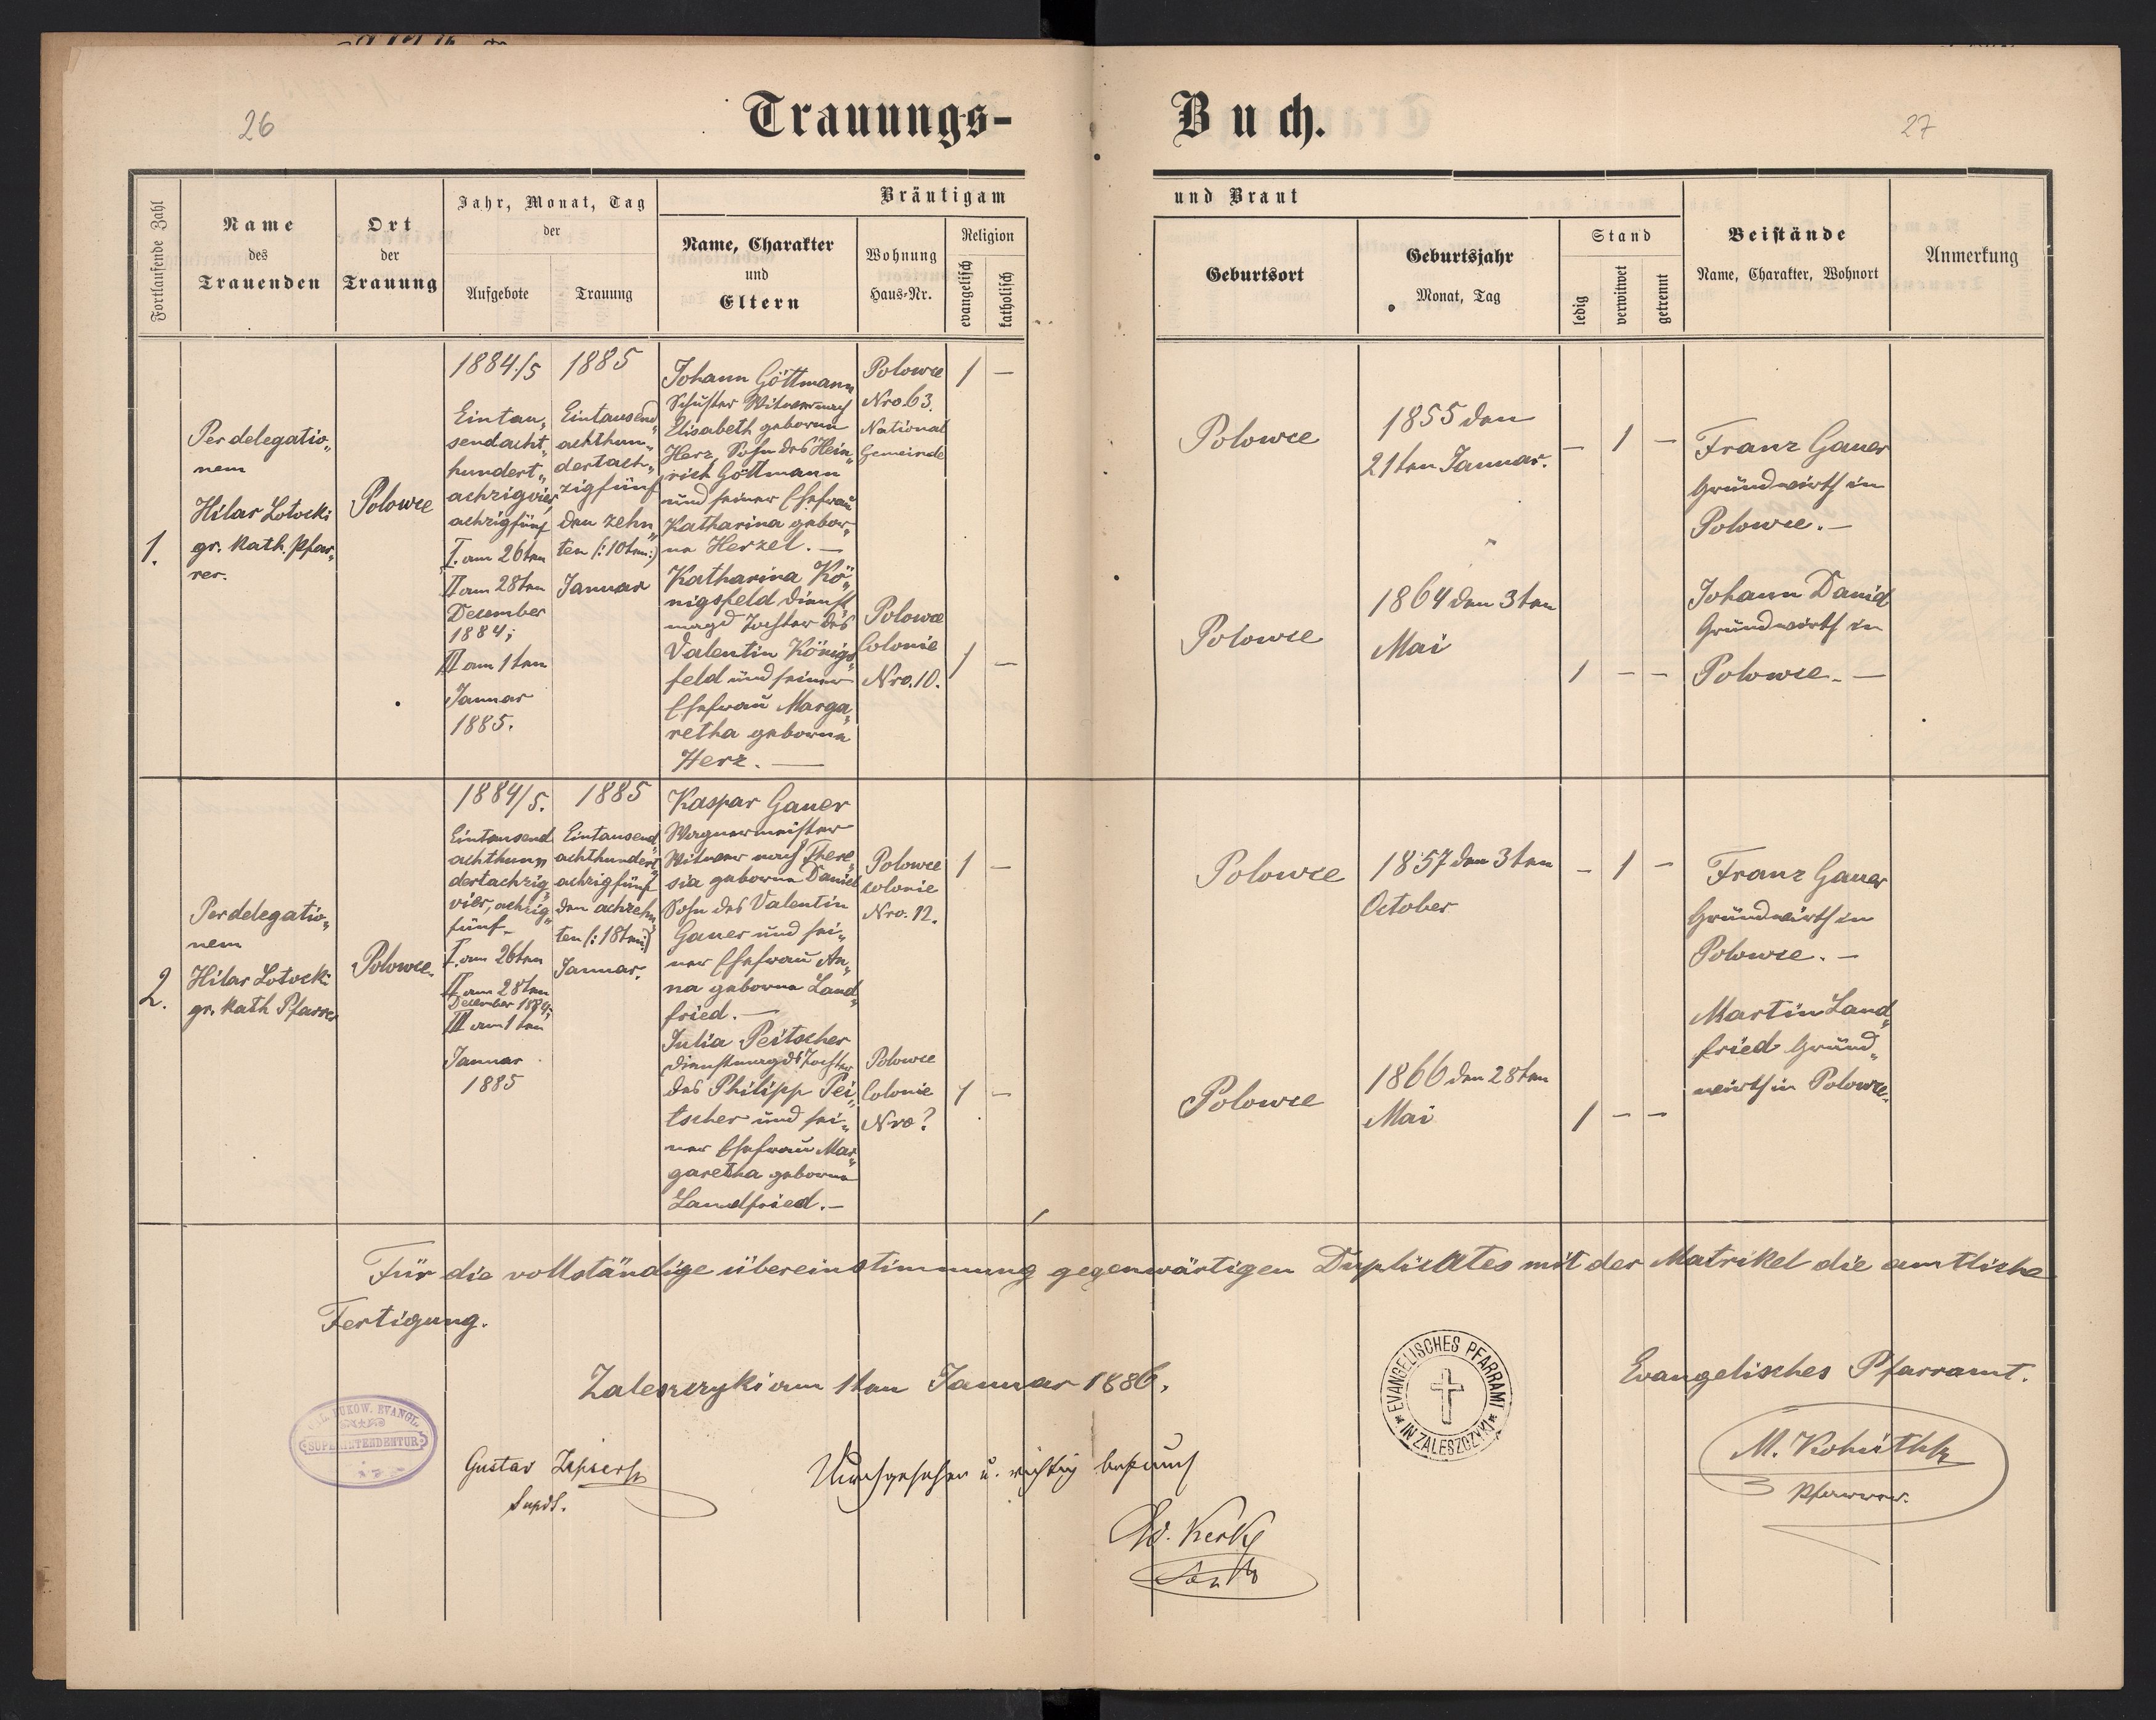 26
27
Trauungs-
Buch.
Fortlaufende Zahl
Name
des
Trauenden
Ort
der
Trauung
Jahr, Monat, Tag
der
Aufgebote
Trauung
Bräutigam
Name, Charakter
und
Eltern
Wohnung
Haus-Nr.
Religion
evangelisch
katholisch
und Braut
Geburtsort
Geburtsjahr
Monat, Tag
Stand
ledig
verwitwet
getrennt
Beistände
Name, Charakter, Wohnort
Anmerkung
1.
Per delegatio„
nem
Hilar Lotocki
gr. kath. Pfar„
rer.
Polowce
1884/5
Eintau„
sendacht„
hundert„
achzigvier
achzigfünf
I. am 26ten
II am 28ten
December
1884;
III am 1ten
Januar
1885.
1885
Eintausend„
achthun„
dertach„
zigfünf
den zehn„
ten (:10ten:)
Januar
Johann Göttmann
Schuster Witwer nach
Elisabeth geborne
Herz, Sohn des Hein„
rich Göttmann
und seiner Ehefrau
Katharina gebor„
ne Herzel. —
Katharina Kö„
nigsfeld Dienst„
magd Tochter des
Valentin Königs„
feld und seiner
Ehefrau Marga„
retha geborne
Herz. —
Polowce
Nro 63.
National
Gemeinde
1 —
Polowce
Colonie
Nro. 10.
1 —
Polowce
1855 den
21ten Januar.
— 1 —
Polowce
1864 den 3ten
Mai
1 — —
Franz Gauer
Grundwirth in
Polowce. —
Johann Daniel
Grundwirth in
Polowce. —
2.
Per delegatio„
nem
Hilar Lotocki
gr. kath Pfarrer
Polowce.
1884/5.
Eintausend
achthun„
dertachzig„
vier, achzig„
fünf
I. am 26ten
II am 28ten
December 1884;
III am 1ten
Januar
1885
1885
Eintausend„
achthundert„
achzigfünf
den achzehn„
ten (:18ten:)
Januar.
Kaspar Gauer
Wagnermeister
Witwer nach There„
sia geborne Daniel
Sohn des Valentin
Gauer und sei„
ner Ehefrau An„
na geborne Land„
fried. —
Julia Peitscher
Dienstmagd Tochter
des Philipp Pei„
tscher und sei„
ner Ehefrau Mar„
garetha geborne
Landfried. —
Polowce
colonie
Nro. 12.
1 —
Polowce
Colonie
Nro?
1 —
Polowce
1857 den 3ten
October
— 1 —
Polowce
1866 den 28ten
Mai
1 — —
Franz Gauer
Grundwirth in
Polowce. —
Martin Land„
fried Grund„
wirth in Polowce.
Für die vollständige übereinstimmung gegenwärtigen Duplicates mit der Matrikel die amtliche
Fertigung.
Zaleszczyki am 1ten Januar 1886.
EVANGELISCHES PFARRAMT
IN ZALESZCZYKI
Evangelisches Pfarramt.
M. Kohuth
Pfarrer.
BUKOW. EVANGL.
SUPERINTENDENTUR
Gustav
Supdt.
Durchgesehen u. richtig befund